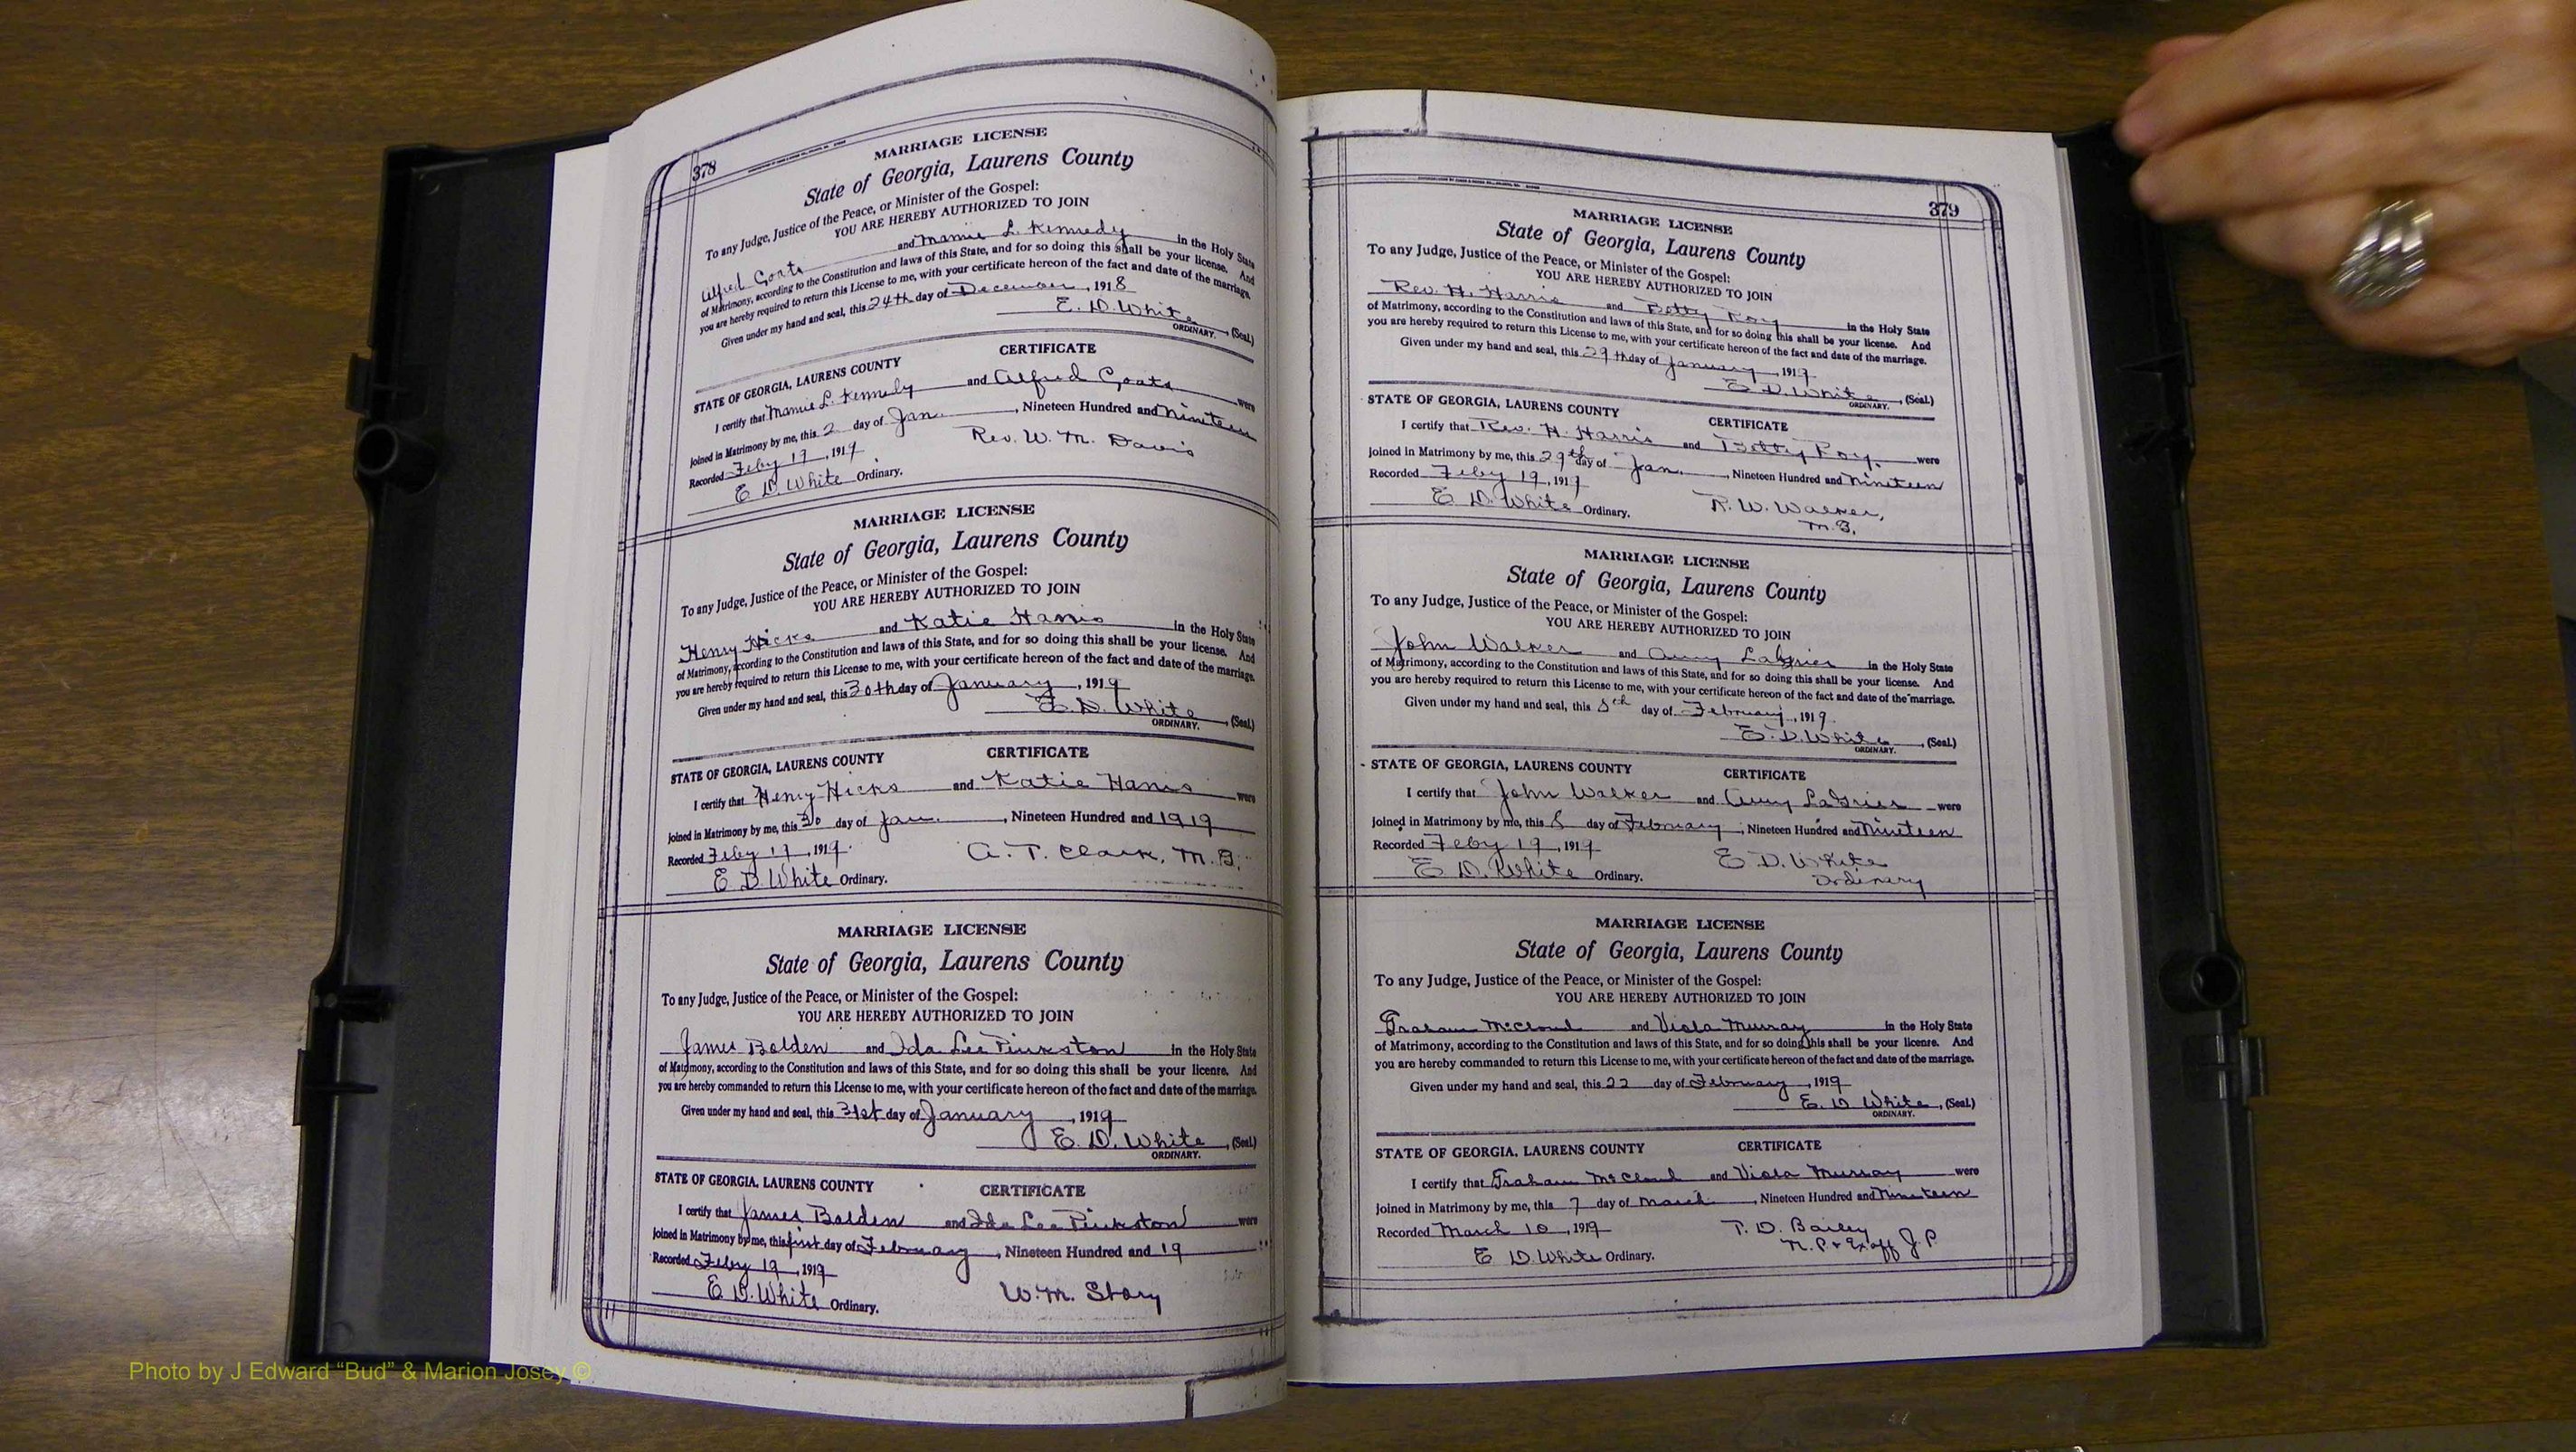 378
MARRIAGE LICENSE
State of Georgia, Laurens County
To any Judge, Justice of the Peace, or Minister of the Gospel:
YOU ARE HEREBY AUTHORIZED TO JOIN
Alfred Coats and Mamie L. Kennedy in the Holy State
of Matrimony, according to the Constitution and laws of this State, and for so doing this shall be your license. And
you are hereby required to return this License to me, with your certificate hereon of the fact and date of the marriage.
Given under my hand and seal, this 24th day of December, 1918
E. D. White, (Seal.)
ORDINARY.
CERTIFICATE
STATE OF GEORGIA, LAURENS COUNTY
I certify that Mamie L. Kennedy and Alfred Coats were
joined in Matrimony by me, this 2 day of Jan., Nineteen Hundred and nineteen
Recorded Feby 17, 1919 Rev. W. M. Davis
E D. White Ordinary.
MARRIAGE LICENSE
State of Georgia, Laurens County
To any Judge, Justice of the Peace, or Minister of the Gospel:
YOU ARE HEREBY AUTHORIZED TO JOIN
Henry Hicks and Katie Harris in the Holy State
of Matrimony, according to the Constitution and laws of this State, and for so doing this shall be your license. And
you are hereby required to return this License to me, with your certificate hereon of the fact and date of the marriage.
Given under my hand and seal, this 30th day of January, 1919
E. D. White, (Seal.)
ORDINARY.
CERTIFICATE
STATE OF GEORGIA, LAURENS COUNTY
I certify that Henry Hicks and Katie Harris were
joined in Matrimony by me, this 30 day of Jan., Nineteen Hundred and 1919
Recorded Feby 17, 1919. A. T. Clark, M. B.
E D. White Ordinary.
MARRIAGE LICENSE
State of Georgia, Laurens County
To any Judge, Justice of the Peace, or Minister of the Gospel:
YOU ARE HEREBY AUTHORIZED TO JOIN
James Bolden and Ida Lee Pinkston in the Holy State
of Matrimony, according to the Constitution and laws of this State, and for so doing this shall be your license. And
you are hereby commanded to return this License to me, with your certificate hereon of the fact and date of the marriage.
Given under my hand and seal, this 31st day of January, 1919
E. D. White, (Seal.)
ORDINARY.
STATE OF GEORGIA, LAURENS COUNTY CERTIFICATE
I certify that James Bolden and Ida Lee Pinkston were
joined in Matrimony by me, this first day of February, Nineteen Hundred and 19
Recorded Feby 19, 1919
E D. White Ordinary. W. M. Story
379
MARRIAGE LICENSE
State of Georgia, Laurens County
To any Judge, Justice of the Peace, or Minister of the Gospel:
YOU ARE HEREBY AUTHORIZED TO JOIN
Rev. H. Harris and Betty in the Holy State
of Matrimony, according to the Constitution and laws of this State, and for so doing this shall be your license. And
you are hereby required to return this License to me, with your certificate hereon of the fact and date of the marriage.
Given under my hand and seal, this 29th day of January, 1919.
E. D. White, (Seal.)
ORDINARY.
STATE OF GEORGIA, LAURENS COUNTY CERTIFICATE
I certify that Rev. H. Harris and Betty were
joined in Matrimony by me, this 29th day of Jan., Nineteen Hundred and nineteen
Recorded Feby 19, 1919 R. W. Walker,
E D. White Ordinary. M. B.
MARRIAGE LICENSE
State of Georgia, Laurens County
To any Judge, Justice of the Peace, or Minister of the Gospel:
YOU ARE HEREBY AUTHORIZED TO JOIN
John Walker and in the Holy State
of Matrimony, according to the Constitution and laws of this State, and for so doing this shall be your license. And
you are hereby required to return this License to me, with your certificate hereon of the fact and date of the marriage.
Given under my hand and seal, this 8th day of February, 1919.
E. D. White, (Seal.)
ORDINARY.
STATE OF GEORGIA, LAURENS COUNTY CERTIFICATE
I certify that John Walker and were
joined in Matrimony by me, this 8 day of February, Nineteen Hundred and Nineteen
Recorded Feby 19, 1919 E D. White
E D. White Ordinary. Ordinary
MARRIAGE LICENSE
State of Georgia, Laurens County
To any Judge, Justice of the Peace, or Minister of the Gospel:
YOU ARE HEREBY AUTHORIZED TO JOIN
Graham McCloud and Viola Murray in the Holy State
of Matrimony, according to the Constitution and laws of this State, and for so doing this shall be your license. And
you are hereby commanded to return this License to me, with your certificate hereon of the fact and date of the marriage.
Given under my hand and seal, this 22 day of February, 1919
E. D White, (Seal.)
ORDINARY.
STATE OF GEORGIA, LAURENS COUNTY CERTIFICATE
I certify that Graham McCloud and Viola Murray were
joined in Matrimony by me, this 7 day of March, Nineteen Hundred and Nineteen
Recorded March 10, 1919 T. D. Bailey
E D. White Ordinary. N. P. & Ex off J. P.
Photo by J Edward "Bud" & Marion Josey ©